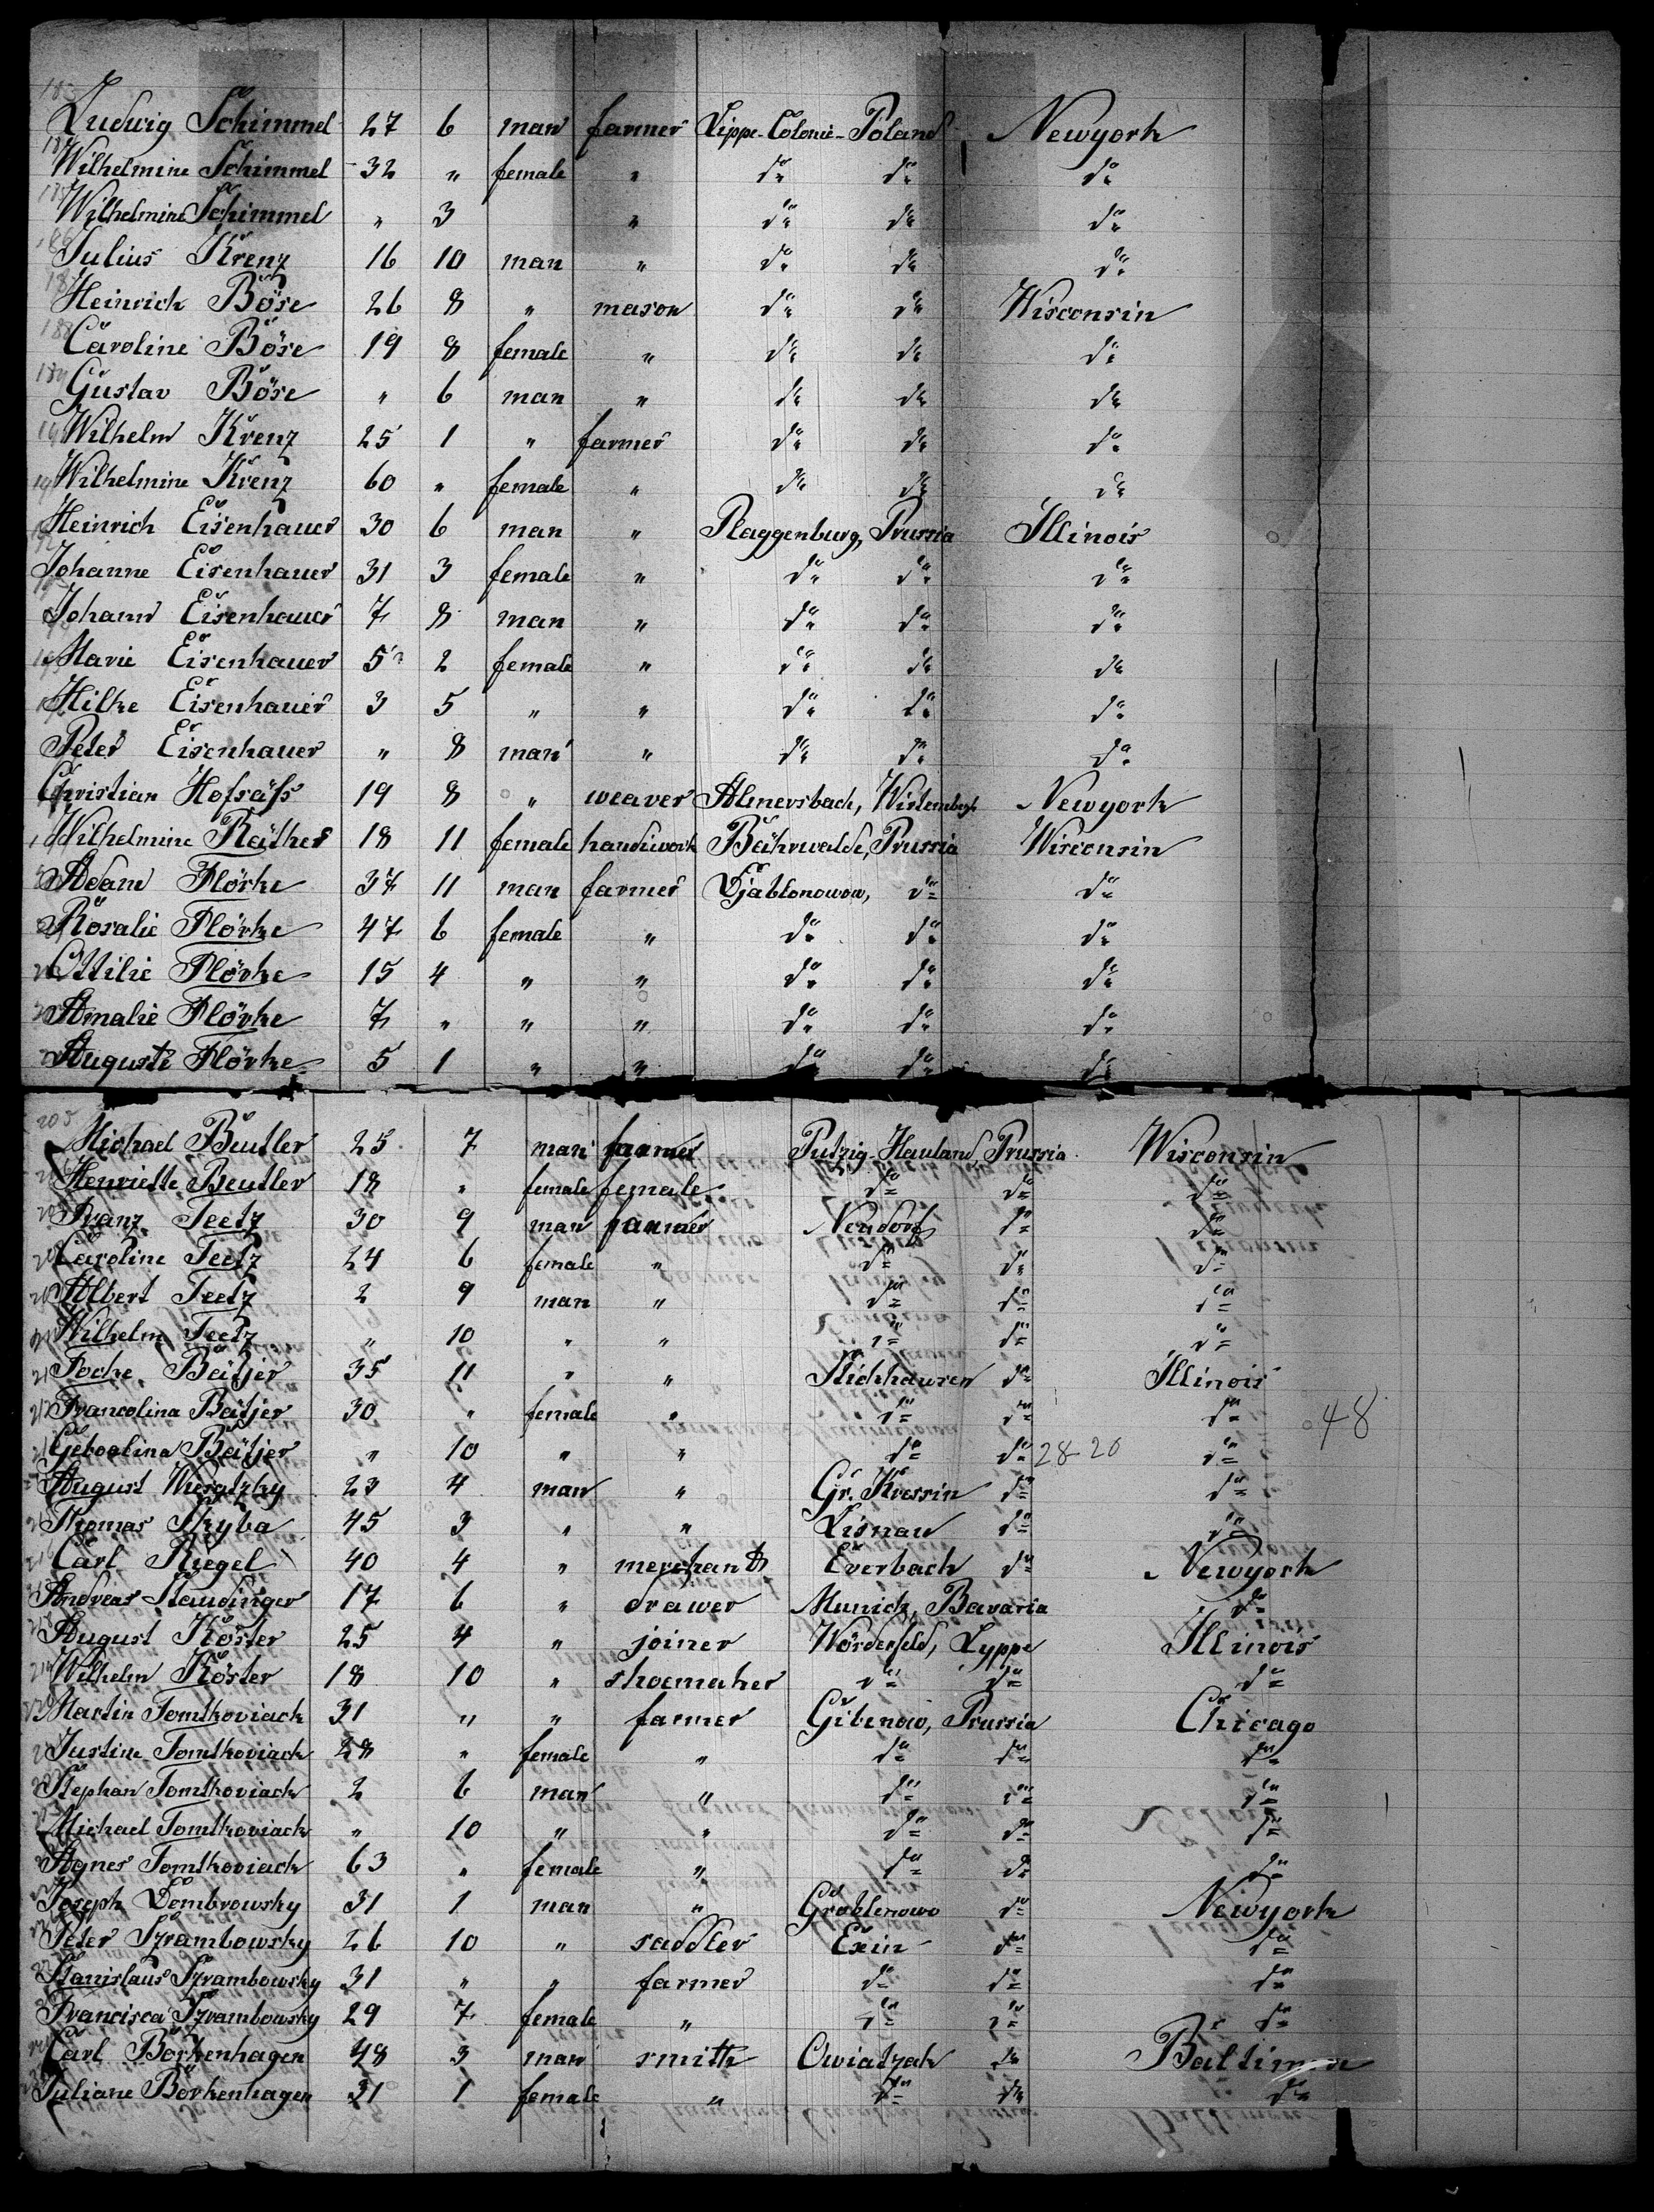 183 Ludwig Schimmel 27 6 man farmer Lippe-Colonie- Poland Newyork
Wilhelmine Schimmel 32 " female " do do do
Wilhelmine Schimmel " 3 " do do do
Julius Krenz 16 10 man " do do do
Heinrich Böse 26 8 " mason do do Wisconsin
188 Caroline Böse 19 8 female " do do do
189 Gustav Böse " 6 man " do do do
Wilhelm Krenz 25 1 " farmer do do do
Wilhelmine Krenz 60 " female " do do do
Heinrich Eisenhauer 30 6 man " Plaggenburg, Prussia Illinois
Johanne Eisenhauer 31 3 female " do do do
Johann Eisenhauer 7 8 man " do do do
Marie Eisenhauer 5 2 female " do do do
Hilke Eisenhauer 3 5 " " do do do
Peter Eisenhauer " 8 man " do do do
Christian Hofsäfs 19 8 " weaver Almersbach, Newyork
Wilhelmine Räther 18 11 female handiwork Bährwalde, Prussia Wisconsin
Adam Flörke 37 11 man farmer Djablonowow, do do
Rosalie Flörke 47 6 female " do do do
Ottilie Flörke 15 4 " " do do do
Amalie Flörke 7 " " " do do do
Auguste Flörke 5 1 " " do do do
205 Michael Beutler 25 7 man farmer Putzig-Hauland, Prussia Wisconsin
Henriette Beutler 18 " female female do do do
Franz Teetz 30 9 man farmer Neudorf do do
Caroline Teetz 24 6 female " do do do
Albert Teetz 2 9 man " do do do
Wilhelm Teetz " 10 " " do do do
Focke Bätjer 35 11 " " Stickhausen do Illinois
212 Francolina Bätjer 30 " female " do do do 48
Geboolina Bätjer " 10 " " do do 28-20 do
August 23 4 man " Gr. Kressin do do
Thomas Skyba 45 3 " " Lisnau do do
Carl Riegel 40 4 " merchant Everbach do Newyork
Andreas Staudinger 17 6 " drawer Munich, Bavaria do
August Köster 25 4 " joiner Wörderfeld, Lyppe Illinois
219 Wilhelm Köster 18 10 " shoemaker do do do
Martin Tomtkoviack 31 " " farmer Gibenow, Prussia Chicago
Justine Tomtkoviack 28 " female " do do do
Stephan Tomtkoviack 2 6 man " do do do
Michael Tomtkoviack " 10 " " do do do
Agnes Tomtkoviack 63 " female " do do do
Joseph Dombrowsky 31 1 man " Groblenowo do Newyork
Peter Szrambowsky 26 10 " saddler Exin do do
Stanislaus Szrambowsky 31 " " farmer do do do
Francisca Szrambowsky 29 7 female " do do do
Carl Borkenhagen 48 3 man smith Owiatzak do Baltimore
Juliane Borkenhagen 31 1 female " do do do